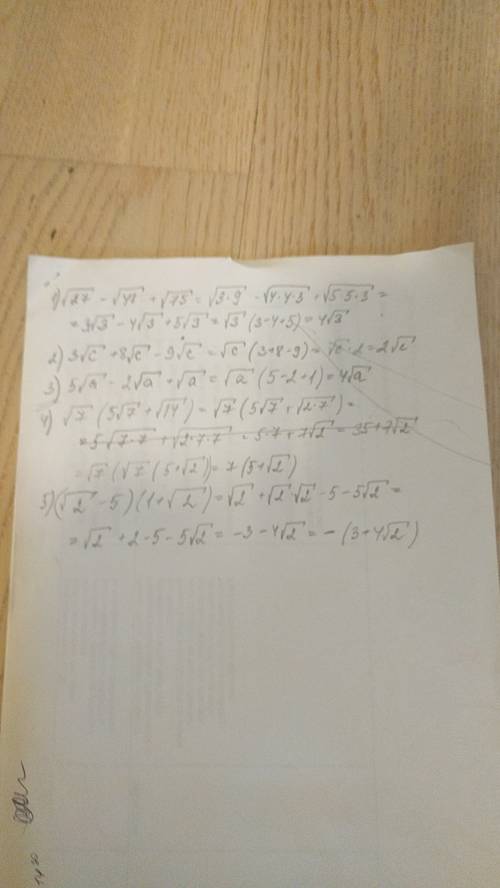 1) √27 - √48 + √75 = √3·9 - √4·4·3 + √5·5·3 =
= 3√3 - 4√3 + 5√3 = √3 (3-4+5) = 4√3
2) 3√c + 8√c - 9√c = √c (3+8-9) = √c·2 = 2√c
3) 5√a - 2√a + √a = √a (5-2+1) = 4√a
4) √7 (5√7 + √14) = √7 (5√7 + √2·7) =
= 5√7·7 + √2·7·7 = 5·7 + 7√2 = 35+7√2
= √7 (√7 (5+√2)) = 7 (5+√2)
5) (√2 - 5) (1+√2) = √2 + √2·√2 - 5 - 5√2 =
= √2 + 2 - 5 - 5√2 = -3 - 4√2 = - (3+4√2)